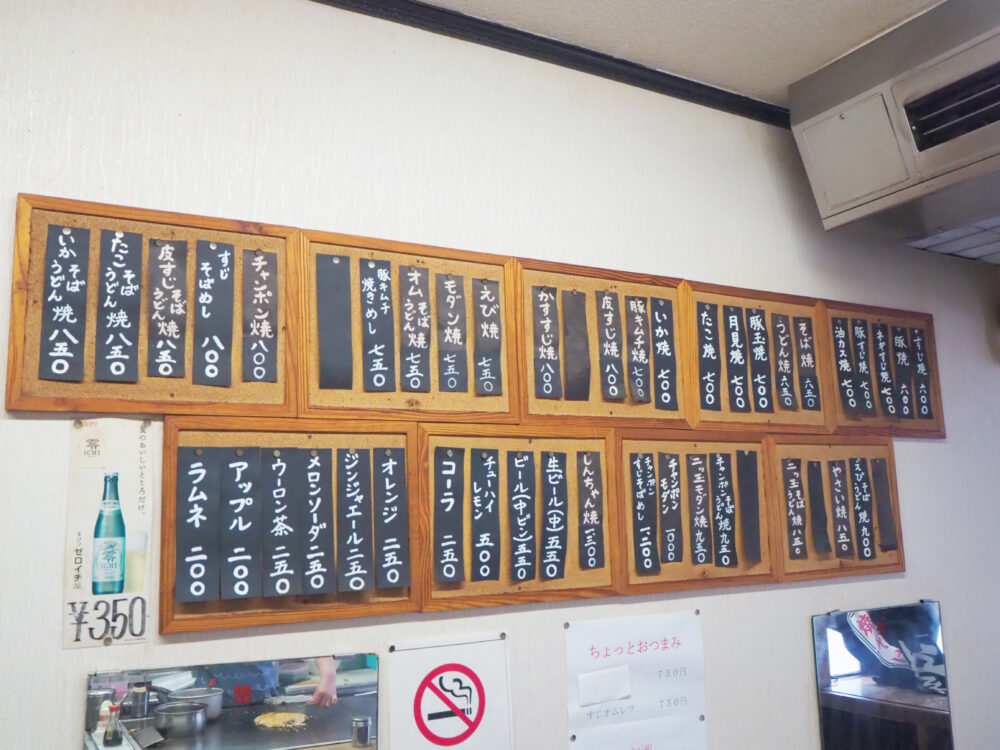 すじ焼 六〇〇
豚焼 六〇〇
ネギすじ焼 七〇〇
豚すじ焼 七〇〇
油カス焼 七〇〇
そば焼 六五〇
うどん焼 六五〇
豚玉焼 七〇〇
月見焼 七〇〇
たこ焼 七〇〇
いか焼 七〇〇
豚キムチ焼 七〇〇
皮すじ焼 八〇〇
かすすじ焼 八〇〇
えび焼 七五〇
モダン焼 七五〇
オムそばうどん焼 七五〇
豚キムチ焼きめし 七五〇
チャンポン焼 八〇〇
すじそばめし 八〇〇
皮すじそばうどん焼 八五〇
たこそばうどん焼 八五〇
いかそばうどん焼 八五〇
えびそばうどん焼 九〇〇
やさい焼 八五〇
二ッ玉そばうどん焼 八五〇
チャンポンそばうどん焼 九五〇
ニッ玉モダン焼 九五〇
チャンポンモダン 一〇〇〇
チャンポンすじそばめし 一、二〇〇
しんちゃん焼 一三〇〇
生ビール(中) 五五〇
ビール(中ビン) 五五〇
チューハイレモン 五〇〇
コーラ 二五〇
オレンジ 二五〇
ジンジャエール 二五〇
メロンソーダ 二五〇
ウーロン茶 二五〇
アップル 二〇〇
ラムネ 二〇〇
麦のおいしいところだけ。
零
ICHI
キリン ゼロイチ
零
ICHI
¥350
ちょっとおつまみ
750円
750円
すじオムレツ